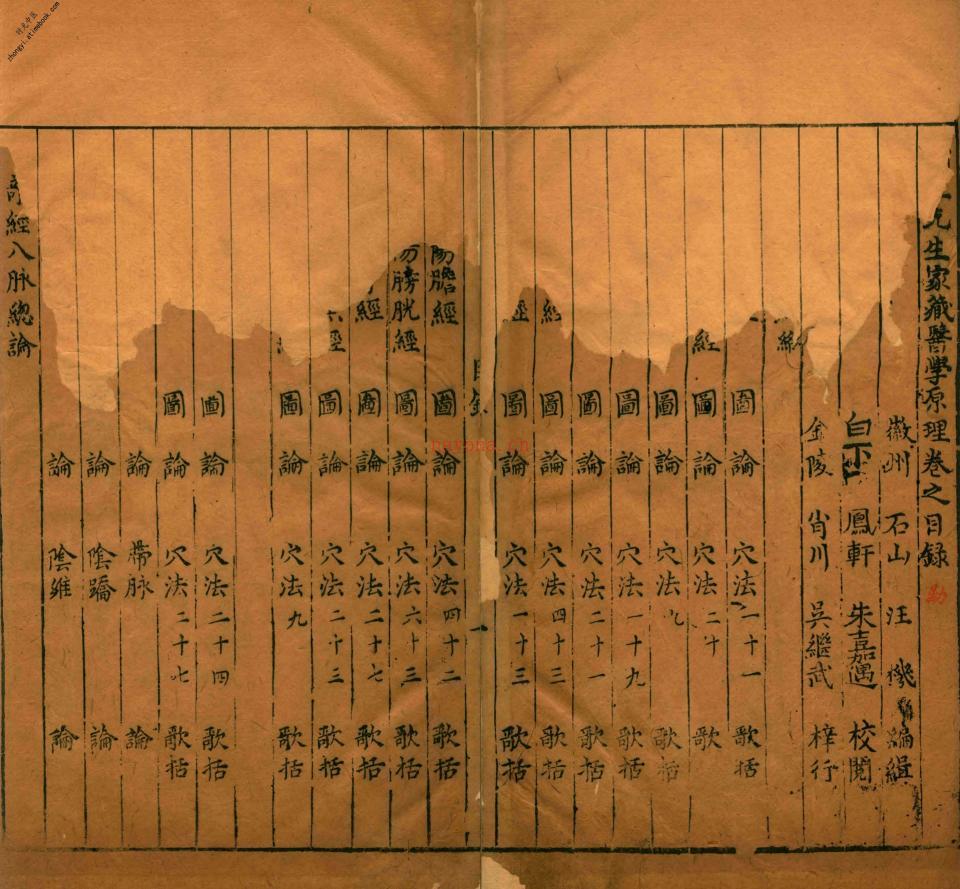 时光中医
zhongyi.atimebook.com
生家藏醫學原理卷之目錄
徽州 石山 汪機 編緝
白下 鳳軒 朱嘉遇 校閱
金陵 肖川 吳繼武 梓行
圖 論 穴法一十一 歌括
經 圖 論 穴法二十 歌
圖 論 穴法九 歌括
圖 論 穴法一十九 歌括
圖 論 穴法二十一 歌括
圖 論 穴法四十三 歌括
經 圖 論 穴法一十三 歌括
目錄 一
膽經 圖 論 穴法四十二 歌括
膀胱經 圖 論 穴法六十三 歌括
經 圖 論 穴法二十七 歌括
經 圖 論 穴法二十三 歌括
圖 論 穴法九 歌括
圖 論 穴法二十四 歌括
圖 論 穴法二十七 歌括
論 帶脉 論
論 陰蹻 論
論 陰維 論
經八脉總論